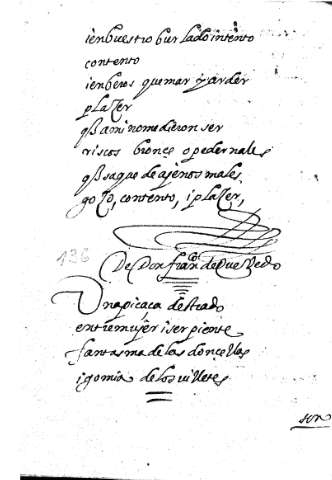 ienbuestro burlado intento
contento
ienberos quemar y arder
plazer
q̃ a mi no me dieron ser
riscos bronçe o pedernales
q̃ saque de ajenos males
gozo, contento, i plazer,
136
De Don franco de Quevedo
Una picaça de strado
entre mujer i serpiente
fantasma de las doncellas
i gomia de los villetes
son